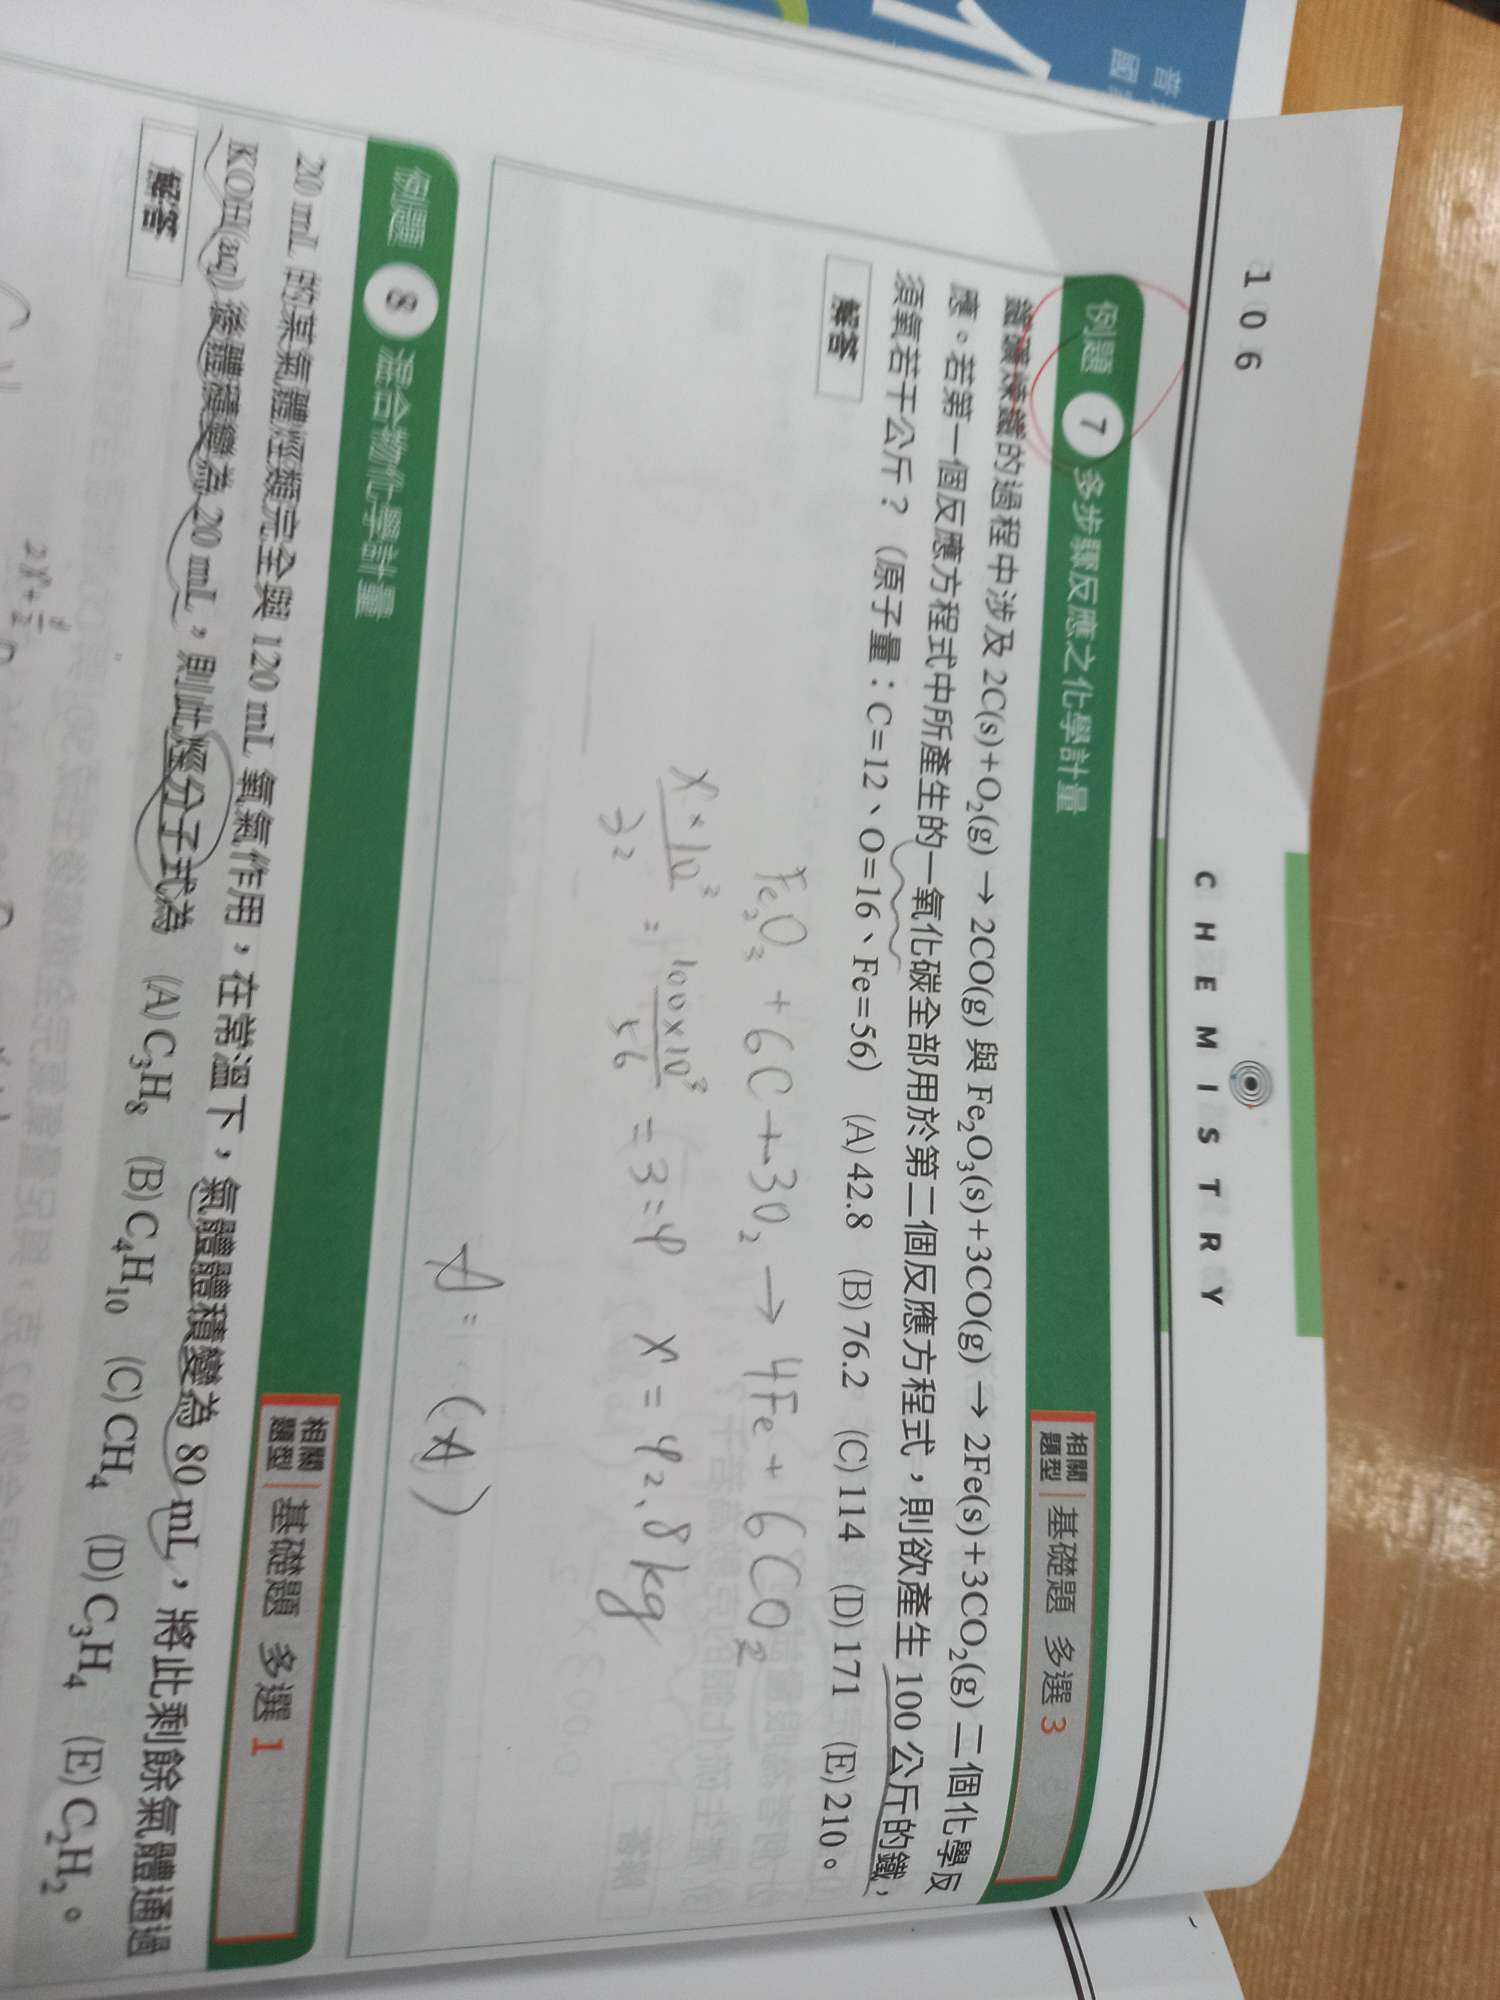 106
CHEMISTRY
例題 7 多步驟反應之化學計量
相關題型 基礎題 多選 3
鐵礦煉鐵的過程中涉及 2C(s)+O₂(g) → 2CO(g) 與 Fe₂O₃(s)+3CO(g) → 2Fe(s)+3CO₂(g) 二個化學反
應。若第一個反應方程式中所產生的一氧化碳全部用於第二個反應方程式，則欲產生 100 公斤的鐵，
須氧若干公斤？（原子量：C=12、O=16、Fe=56） (A) 42.8 (B) 76.2 (C) 114 (D) 171 (E) 210。
解答
Fe₂O₃ + 6C + 3O₂ → 4Fe + 6CO₂
x×10³/32 : 100×10³/56 = 3 : 4 x = 42.8 kg
A: (A)
例題 8 混合物化學計量
相關題型 基礎題 多選 1
20 mL 的某氣體烴類完全與 120 mL 氧氣作用，在常溫下，氣體體積變為 80 mL，將此剩餘氣體通過
KOH(aq) 後體積變為 20 mL，則此烴分子式為 (A) C₃H₈ (B) C₄H₁₀ (C) CH₄ (D) C₃H₄ (E) C₂H₂。
解答